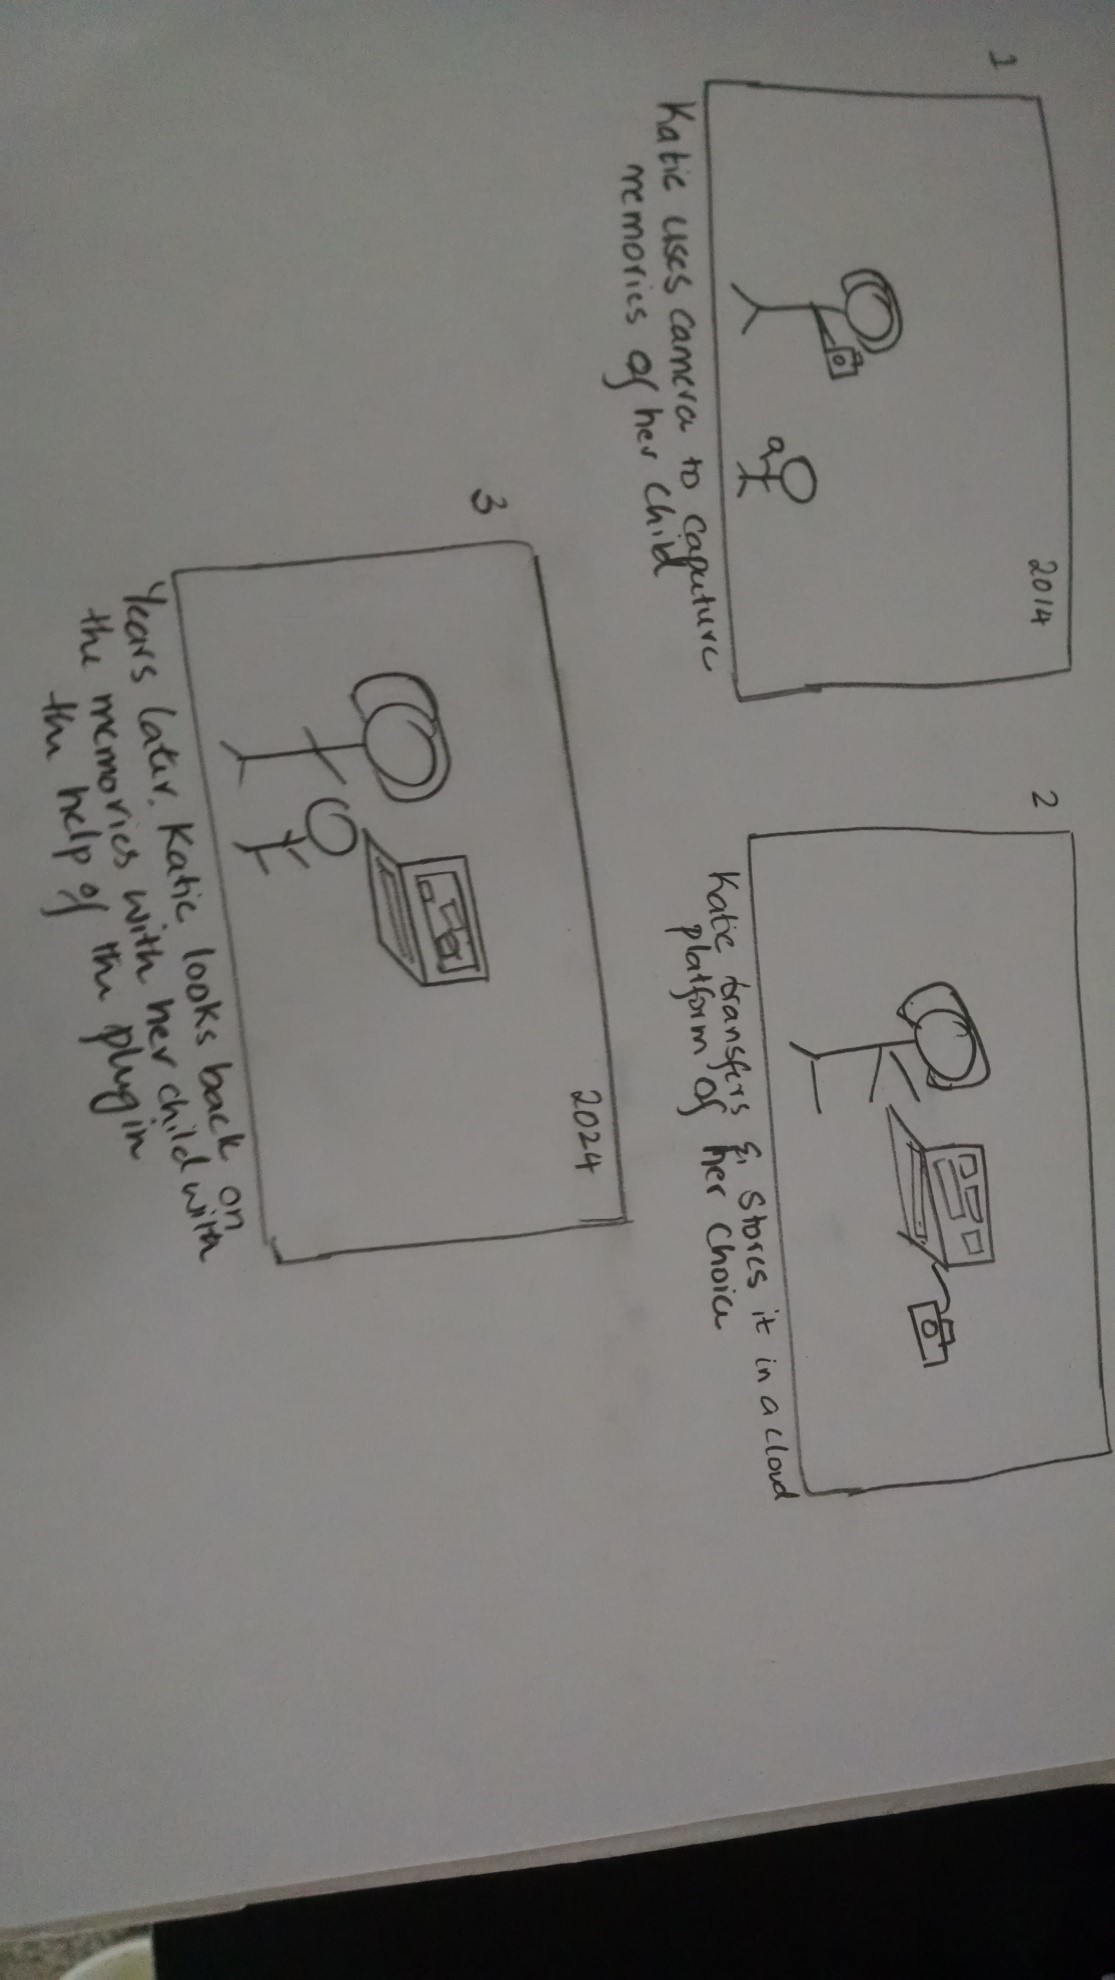 1
2014
Katie uses camera to caputure
memories of her child
2
Katie transfers & stores it in a cloud
platform of her choice
3
2024
Years later, Katie looks back on
the memories with her child with
the help of the plugin